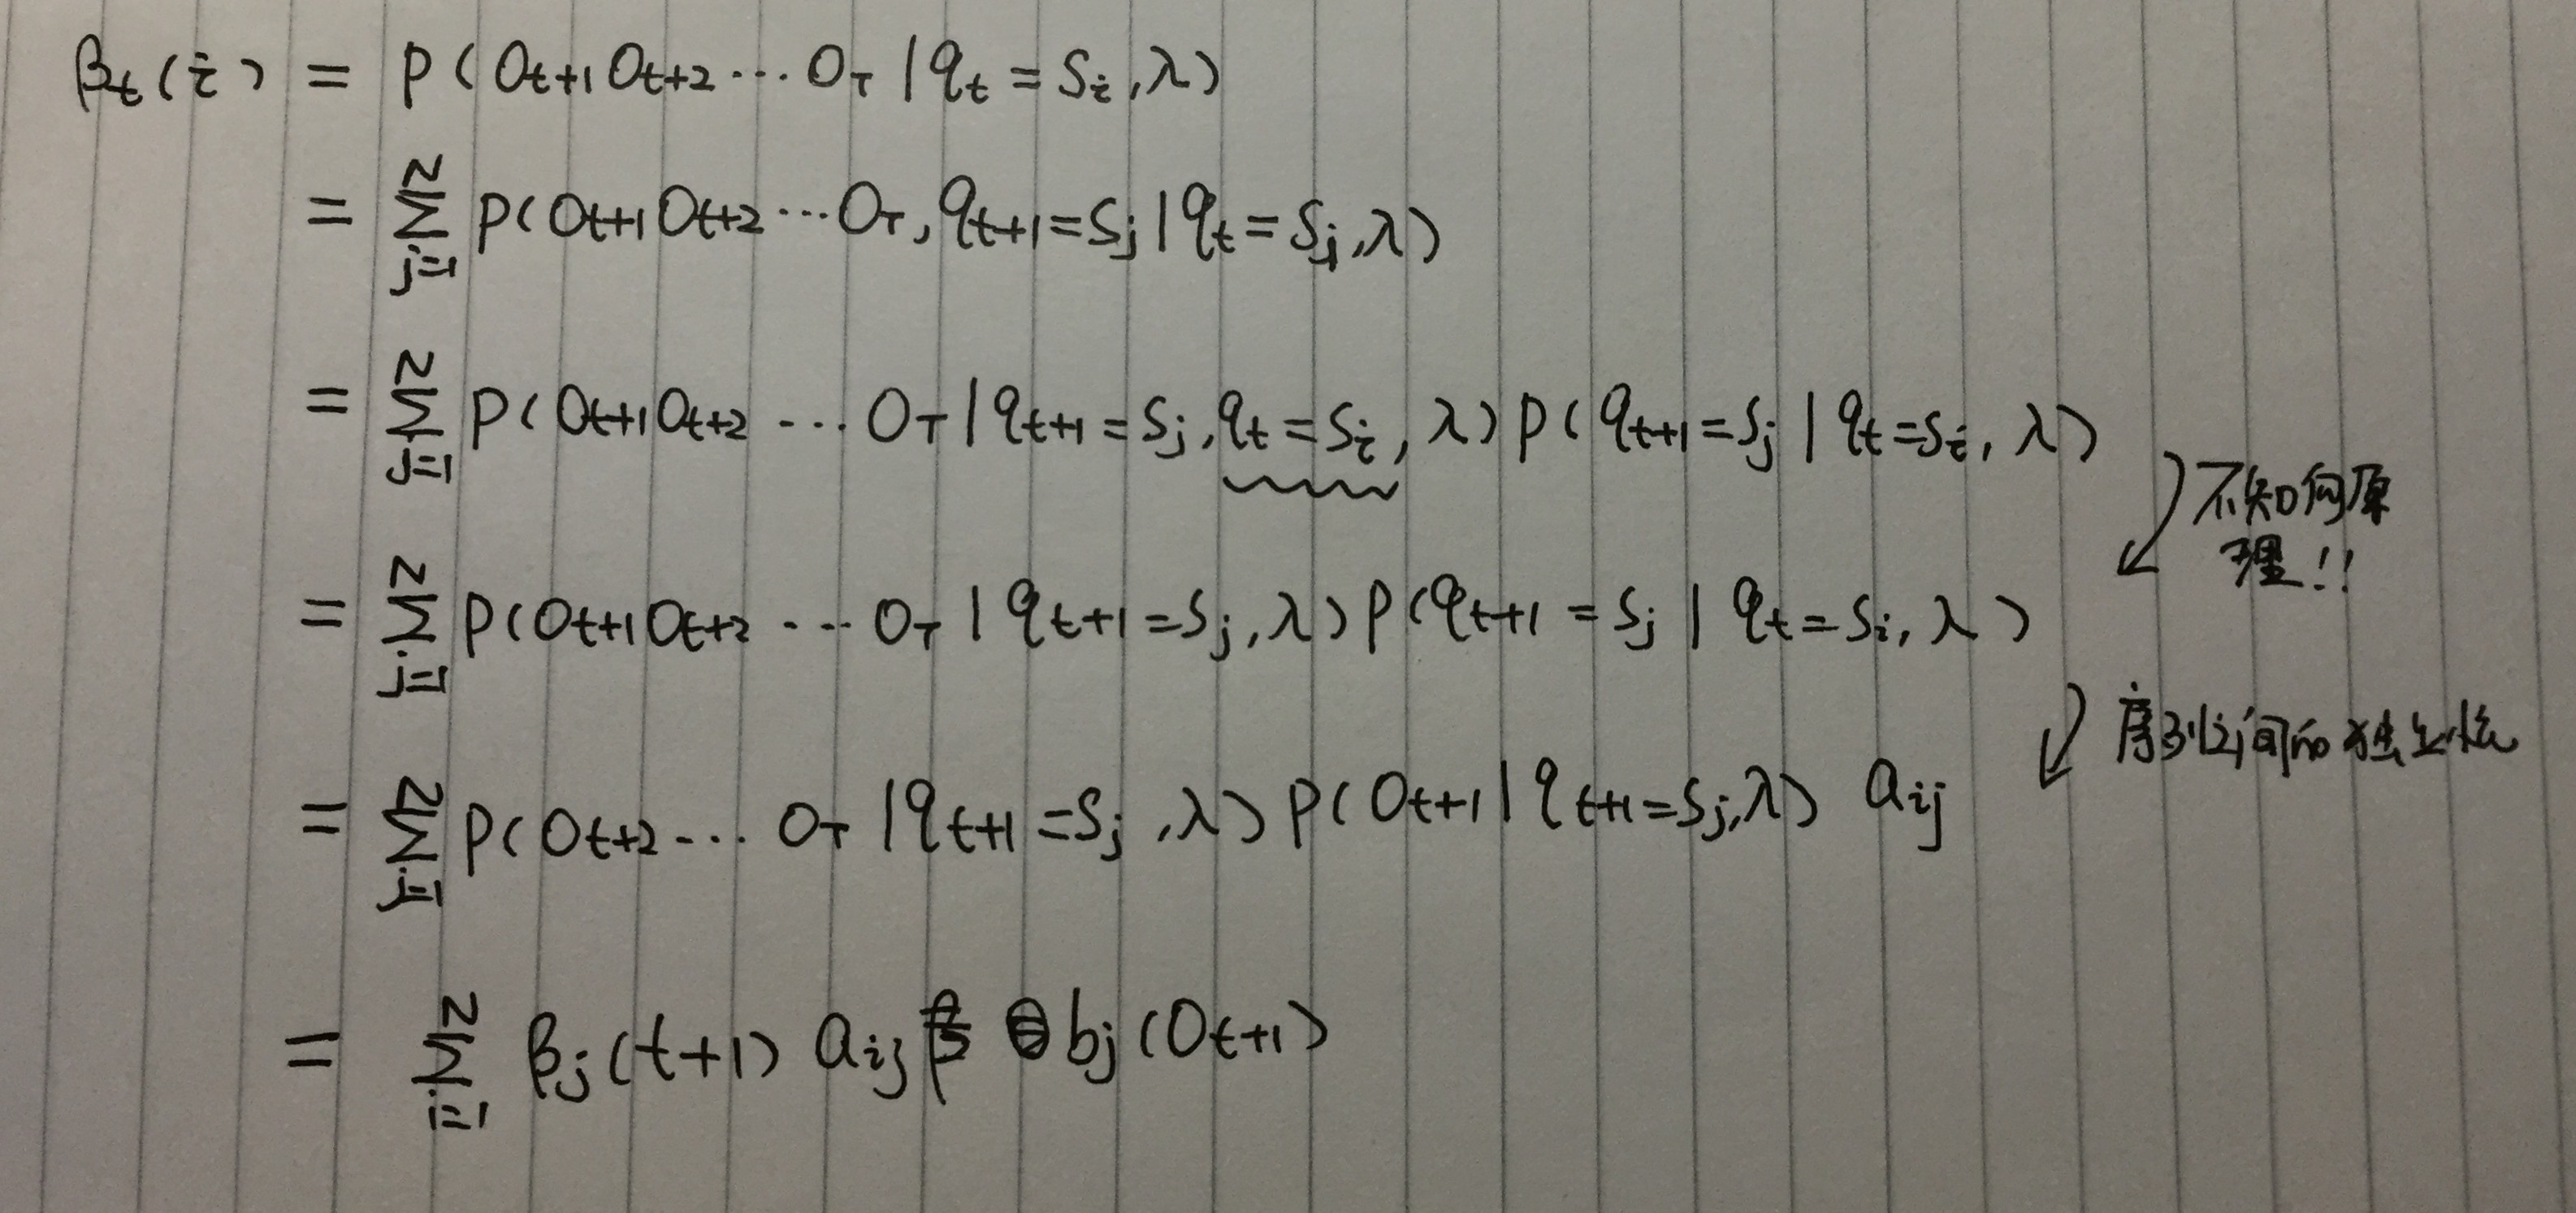 βt(i) = P(Ot+1 Ot+2 ··· OT | qt = Si, λ)
= Σ_{j=1}^{N} P(Ot+1 Ot+2 ··· OT, qt+1 = Sj | qt = Sj, λ)
= Σ_{j=1}^{N} P(Ot+1 Ot+2 ··· OT | qt+1 = Sj, qt = Si, λ) P(qt+1 = Sj | qt = Si, λ)
不知何原
理!!
= Σ_{j=1}^{N} P(Ot+1 Ot+2 ··· OT | qt+1 = Sj, λ) P(qt+1 = Sj | qt = Si, λ)
序列之间的独立性
= Σ_{j=1}^{N} P(Ot+2 ··· OT | qt+1 = Sj, λ) P(Ot+1 | qt+1 = Sj, λ) aij
= Σ_{i=1}^{N} βj(t+1) aij bj(Ot+1)